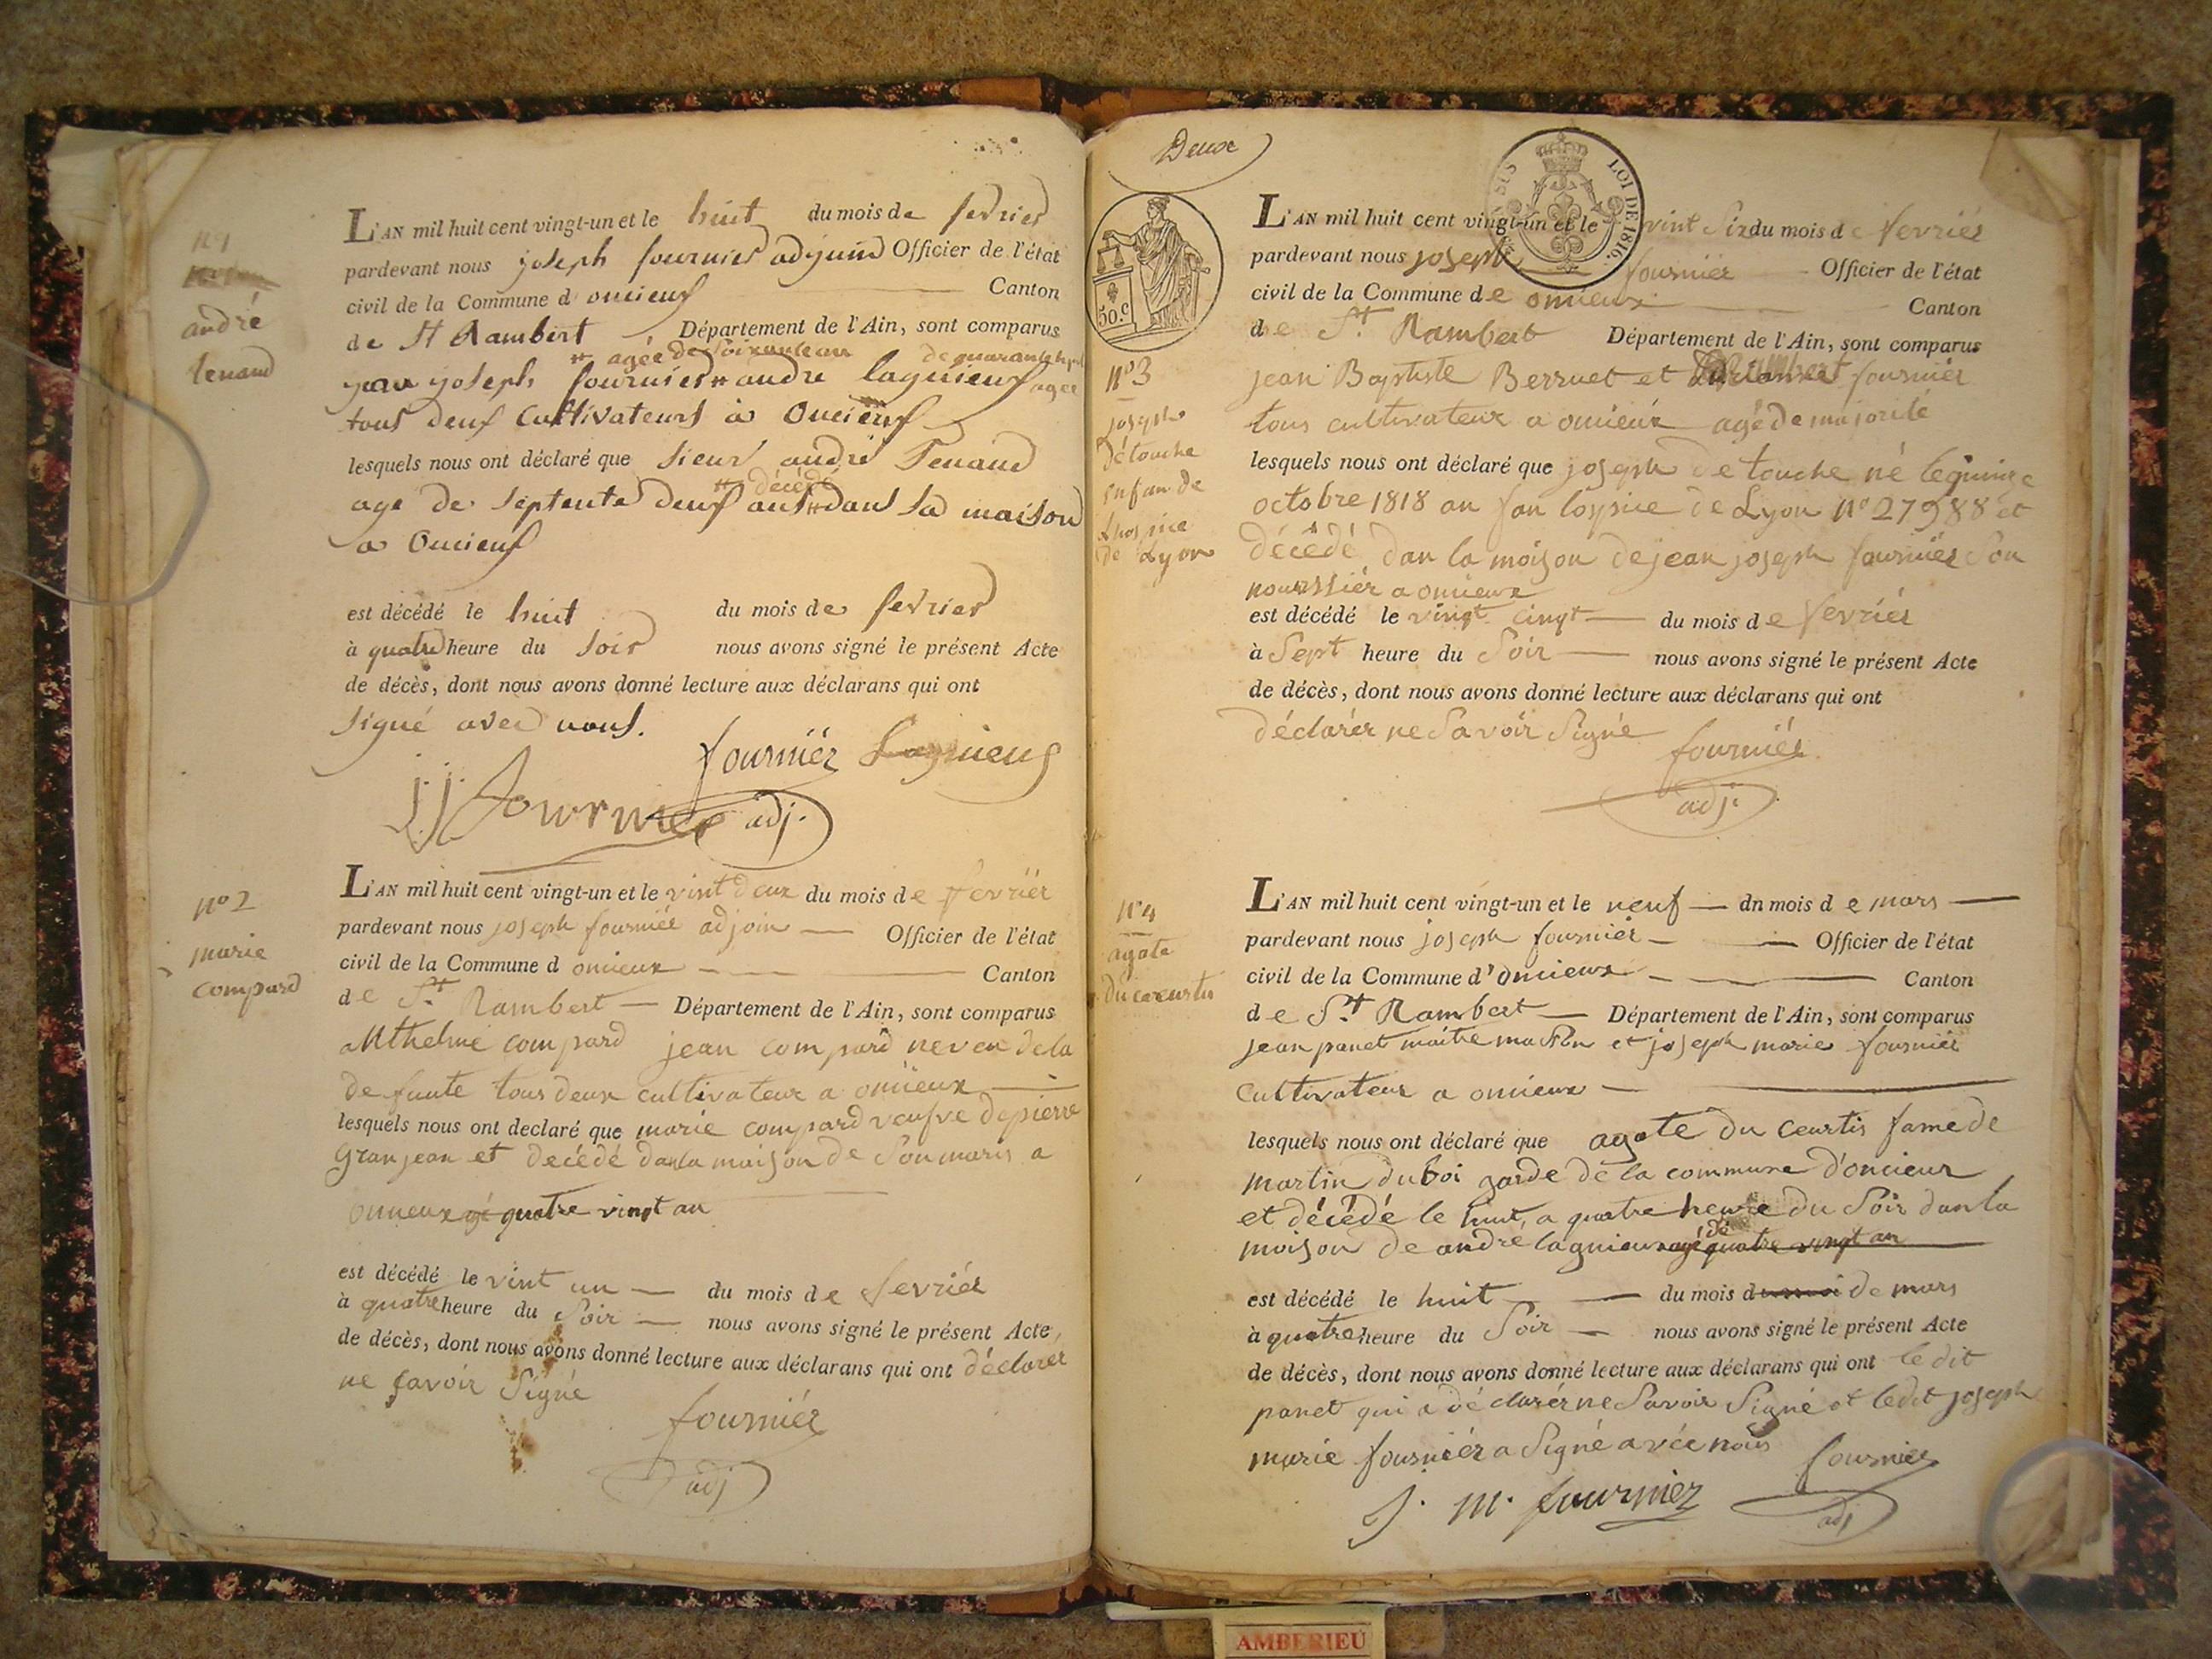 n°1
andré
tenand
L'AN mil huit cent vingt-un et le huit du mois de fevrier
pardevant nous joseph fournier adjoint Officier de l'état
civil de la Commune d oncieux Canton
de St Rambert Département de l'Ain, sont comparus
agée de soixante an de quarante
jean joseph fournier andre lagnieux agée
tous deux Cultivateurs à Oncieux
lesquels nous ont déclaré que Sieur andré Tenand
décédé
age de septente deux ans dans sa maison
a Oncieux
est décédé le huit du mois de fevrier
à quatre heure du soir nous avons signé le présent Acte
de décès, dont nous avons donné lecture aux déclarans qui ont
signé avec nous.
fourniér Lagnieux
j. j. fournier adj.
n°2
marie
compard
L'AN mil huit cent vingt-un et le vint deux du mois de fevriér
pardevant nous joseph fourniér adjoin Officier de l'état
civil de la Commune d oncieux Canton
de St. Rambert Département de l'Ain, sont comparus
anthelme compard jean compard neveu dela
defunte tous deux cultivateur a oncieux
lesquels nous ont declaré que marie compard veufve depierre
Granjean et decédé danla maison de Son maris a
oncieux agé quatre vingt an
est décédé le vint un du mois de fevriér
à quatre heure du Soir nous avons signé le présent Acte,
de décès, dont nous avons donné lecture aux déclarans qui ont déclarér
ne savoir Signé
fourniér
adj
Deux
SUS LOI DE 1816.
50.c
n°3
joseph
Détouche
enfan de
Lhospice
de Lyon
L'AN mil huit cent vingt-un et le vint Six du mois de fevriér
pardevant nous joseph fourniér Officier de l'état
civil de la Commune de oncieux Canton
de St. Rambert Département de l'Ain, sont comparus
jean Baptiste Berruet et fourniér
tous cultivateur a oncieux agé de majorité
lesquels nous ont déclaré que joseph de touche né lequinze
octobre 1818 an fan losspice de Lyon n° 27988 et
décédé dan la moison dejean joseph fourniér Son
nourssiér a oncieux
est décédé le vingt cinqt du mois de fevriér
à Sept heure du Soir nous avons signé le présent Acte
de décès, dont nous avons donné lecture aux déclarans qui ont
déclarér ne Savoir Signé
fourniér
adj.
n°4
agate
du ceurtis
L'AN mil huit cent vingt-un et le neuf dn mois de mars
pardevant nous joseph fourniér Officier de l'état
civil de la Commune d'oncieux Canton
de St. Rambert Département de l'Ain, sont comparus
jean panet maitre masson et joseph marie fourniér
cultivateur a oncieux
lesquels nous ont déclaré que agate du ceurtis fame de
martin duboi garde de la commune d'oncieux
et décédé le huit, a quatre heure du Soir dan la
de
moison de andré lagnieu agé quatre vingt an
est décédé le huit du mois de mars
à quatre heure du Soir nous avons signé le présent Acte
de décès, dont nous avons donné lecture aux déclarans qui ont ledit
panet qui a déclarér ne Savoir Signé et ledit joseph
marie fourniér a Signé avéc nous fourniér
j. m. fournier adj
AMBERIEU